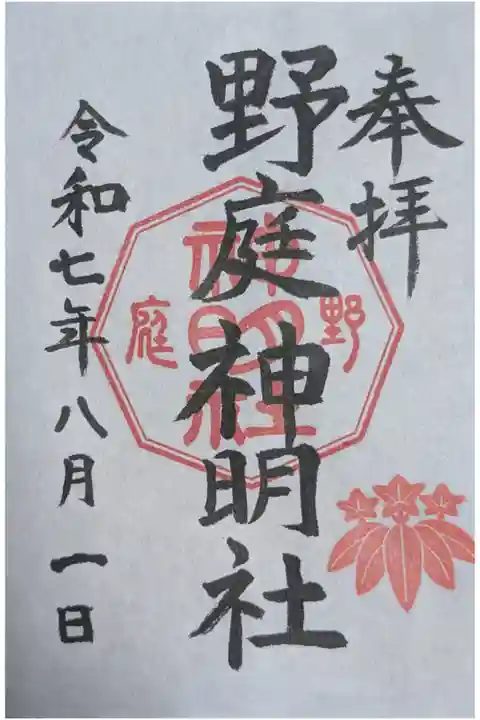 奉拝
野庭神明社
令和七年八月一日
野
庭
神明社